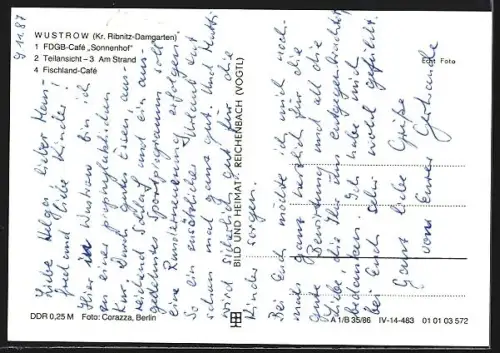 9.11.87
WUSTROW (Kr. Ribnitz-Damgarten)
1 FDGB-Café „Sonnenhof"
2 Teilansicht – 3 Am Strand
4 Fischland-Café
Echt Foto
Liebe Helga, lieber Man-
fred und liebe Kinder!
Hier in Wustrow bin ich
zu einer prophylaktischen
Kur. Durch gutes Essen, aus-
reichend Schlaf und ein aus-
gedehntes Sportprogramm soll
eine Rundumerneuerung erfolgen.
So ein zusätzlicher Urlaub tut
schon mal ganz gut. Und Mutti
wird sicherlich gut für die
Kinder sorgen.
Bei Euch möchte ich mich noch-
mals ganz herzlich für die
gute Bewirtung und all die
Liebe, die Ihr uns entgegenbrachtet
bedanken. Ich habe mich
bei Euch sehr wohl gefühlt.
Ganz liebe Grüße
von Eurer
BILD UND HEIMAT REICHENBACH (VOGTL)
DDR 0,25 M Foto: Corazza, Berlin
A 1/B 35/86 IV-14-483 01 01 03 572